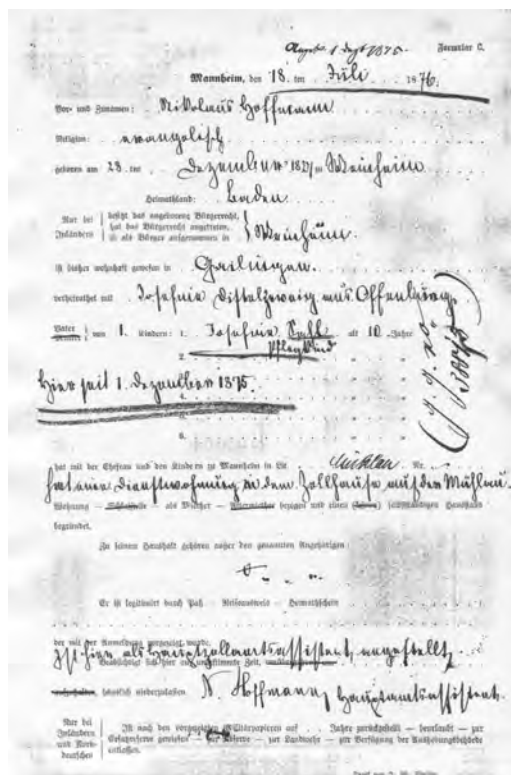 Angek. 1. Dezb 1875. Formular C.
Mannheim, den 18. ten Juli 1876.
Vor- und Zunamen: Nikolaus Hoffmann
Religion: evangelisch
geboren am 28. ten Dezember in Weinheim
Heimathland: Baden
Nur bei Inländern
besitzt das angeborene Bürgerrecht,
hat das Bürgerrecht angetreten,
ist als Bürger aufgenommen in Weinheim.
ist bisher wohnhaft gewesen in Gailingen.
verheirathet mit Josefine Distelzweig aus Offenburg
Vater von 1. Kindern: 1. Josefine alt 10 Jahre
2. Pflegkind
Hier seit 1. Dezember 1875.
4.
5.
6.
hat mit der Ehefrau und den Kindern zu Mannheim in Lit. Mühlau Nr.
hat eine Dienstwohnung in dem Zollhause auf der Mühlau.
Wohnung – Schlafstelle – als Miether – Aftermiether bezogen und einen selbständigen Haushalt
begründet.
Zu seinem Haushalt gehören außer den genannten Angehörigen:
Er ist legitimirt durch Paß – Reiseausweis – Heimathschein
der mit der Anmeldung vorgezeigt wurde.
Ist hier als Hauptzollamtsassistent angestellt,
Beabsichtigt sich hier auf unbestimmte Zeit,
aufzuhalten, häuslich niederzulassen N. Hoffmann, Hauptamtsassistent.
Nur bei Inländern und Nord-deutschen
Ist nach den vorgezeigten Militärpapieren auf . . . Jahre zurückgestellt – beurlaubt – zur
Ersatzreserve gewiesen – zur Reserve – zur Landwehr – zur Verfügung der Aushebungsbehörde
entlassen.